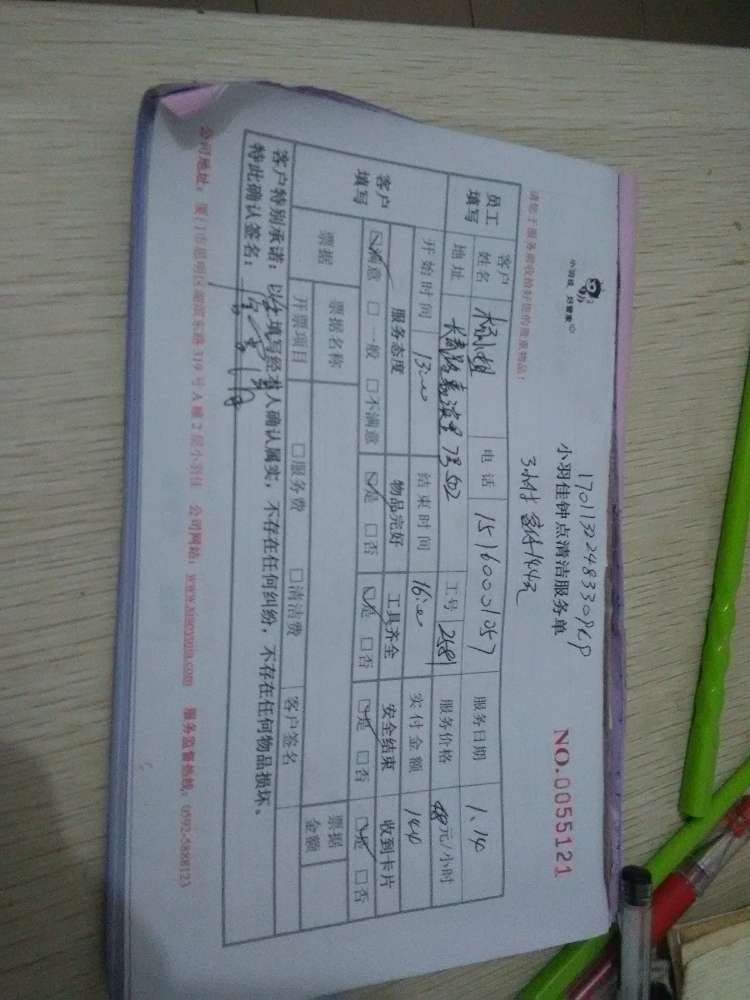 小羽佳 好管家
17011322483309KP
小羽佳钟点清洁服务单
NO.0055121
3小时
请您于服务前收拾好您的贵重物品！
员工填写 客户姓名 杨小姐 电话 15160001057 服务日期 1.14
地址 7号502 工号 258 服务价格 48元/小时
开始时间 13:00 结束时间 16:00 实付金额 144
客户填写 服务态度 物品完好 工具齐全 安全结束 收到卡片
☑满意 □一般 □不满意 ☑是 □否 ☑是 □否 ☑是 □否 ☑是 □否
票据 票据名称 票据金额
开票项目 □服务费 □清洁费 客户签名
客户特别承诺：以上填写经本人确认属实，不存在任何纠纷，不存在任何物品损坏。
特此确认签名：
公司地址：厦门市思明区湖滨东路319号A幢2层小羽佳 公司网站：www.xiaoyujia.com 服务监督热线：0592-5888123